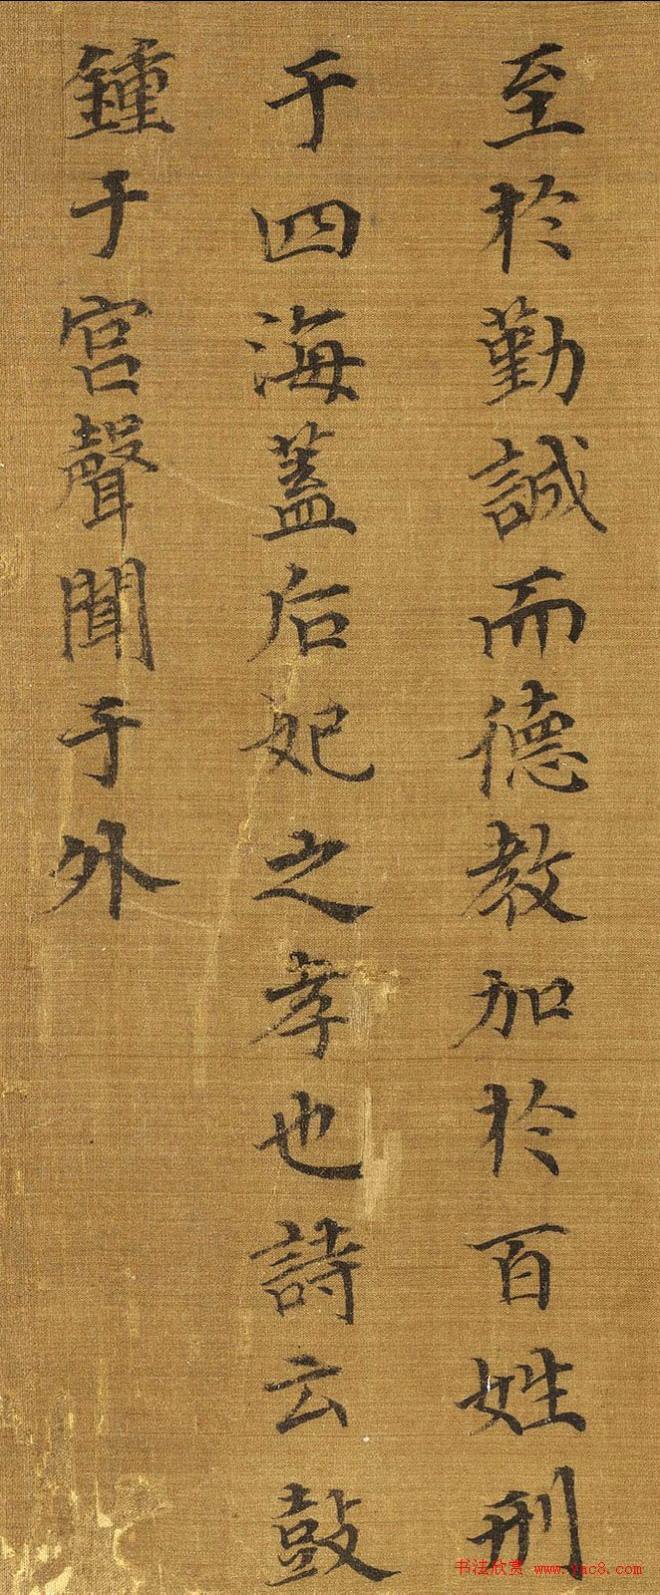 至於勤誠而德教加於百姓刑
于四海蓋后妃之孝也詩云鼓
鍾于宫聲聞于外
书法欣赏 www.yac8.com